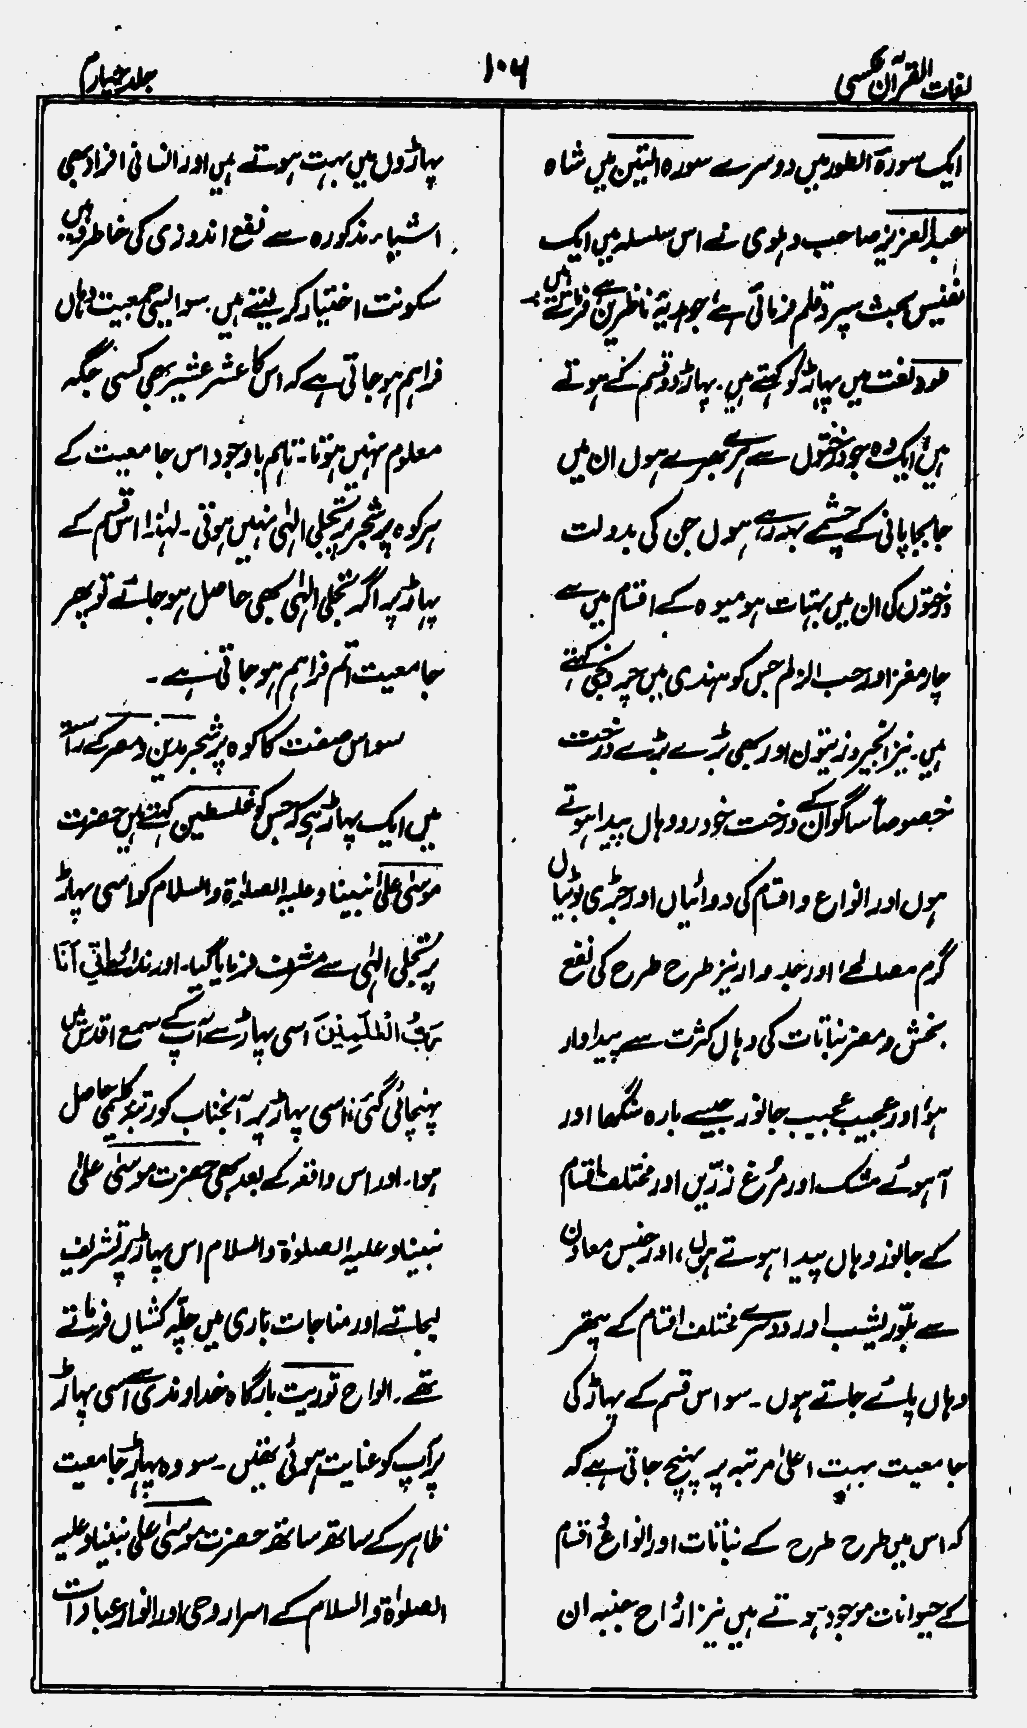 لغات القرآن عکسی
۱۰۶
جلد چہارم
ایک سورۃ الطور میں دوسرے سورہ التین میں شاہ
عبدالعزیز صاحب دہلوی نے اس سلسلہ میں ایک
نفیس بحث سپرد قلم فرمائی ہے، جو ہدیۂ ناظرین ہے فرماتے ہیں
طور لغت میں پہاڑ کو کہتے ہیں۔ پہاڑ دو قسم کے ہوتے
ہیں، ایک وہ جو درختوں سے ہرے بھرے ہوں ان میں
جابجا پانی کے چشمے بہہ رہے ہوں جن کی بدولت
درختوں کی ان میں بہتات ہو میوہ کے اقسام میں سے
چار مغز اور حب الزلم جس کو ہندی میں چرونجی کہتے
ہیں۔ نیز انجیر و زیتون اور بھی بڑے بڑے درخت
خصوصاً ساگوان کے درخت خودرو وہاں پیدا ہوتے
ہوں اور انواع و اقسام کی دوائیاں اور جڑی بوٹیاں
گرم مصالحے اور جدوار نیز طرح طرح کی نفع
بخش و مضر نباتات کی وہاں کثرت سے پیداوار
ہو، اور عجیب عجیب جانور جیسے بارہ سنگھا اور
آہوئے مشک اور مُرغ زرّیں اور مختلف اقسام
کے جانور وہاں پیدا ہوتے ہوں، اور جنس معادن
سے بلّور یشب اور دوسرے مختلف اقسام کے پتھر
وہاں پائے جاتے ہوں۔ سو اس قسم کے پہاڑ کی
جامعیت بہت اعلیٰ مرتبہ پر پہنچ جاتی ہے کہ
کہ اس میں طرح طرح کے نباتات اور انواع اقسام
کے حیوانات موجود ہوتے ہیں نیز ارواح جنیہ ان
پہاڑوں میں بہت ہوتے ہیں اور انسانی افراد بھی
اشیاء مذکورہ سے نفع اندوزی کی خاطر وہیں
سکونت اختیار کر لیتے ہیں۔ سو ایسی جمعیت وہاں
فراہم ہو جاتی ہے کہ اس کا عشر عشیر بھی کسی جگہ
معلوم نہیں ہوتا۔ تاہم باوجود اس جامعیت کے
ہر کوہ پر شجر پر تجلی الٰہی نہیں ہوتی۔ لہٰذا اس قسم کے
پہاڑ پر اگر تجلی الٰہی بھی حاصل ہو جائے تو پھر
جامعیت اتم فراہم ہو جاتی ہے۔
سو اس صفت کا کوہ پر شجر مدین و مصر کے راستہ
میں ایک پہاڑ ہے کہ جس کو فلسطین کہتے ہیں حضرت
موسیٰ علیٰ نبینا و علیہ الصلوٰۃ والسلام کو اسی پہاڑ
پر تجلی الٰہی سے مشرف فرمایا گیا۔ اور ندائے اِنِّیْٓ اَنَا
رَبُّ الْعٰلَمِیْنَ اسی پہاڑ سے آپ کے سمع اقدس میں
پہنچائی گئی، اسی پہاڑ پر آنجناب کو رتبۂ کلیمی حاصل
ہوا۔ اور اس واقعہ کے بعد بھی حضرت موسیٰ علیٰ
نبینا و علیہ الصلوٰۃ والسلام اس پہاڑ پر تشریف
لیجاتے اور مناجات باری میں چلّہ کشیاں فرماتے
تھے۔ الواح توریت بارگاہ خداوندی سے اسی پہاڑ
پر آپ کو عنایت ہوئی تھیں۔ سو وہ پہاڑ جامعیت
ظاہر کے ساتھ ساتھ حضرت موسیٰ علی نبینا و علیہ
الصلوٰۃ والسلام کے اسرار وحی اور انوار عبادات